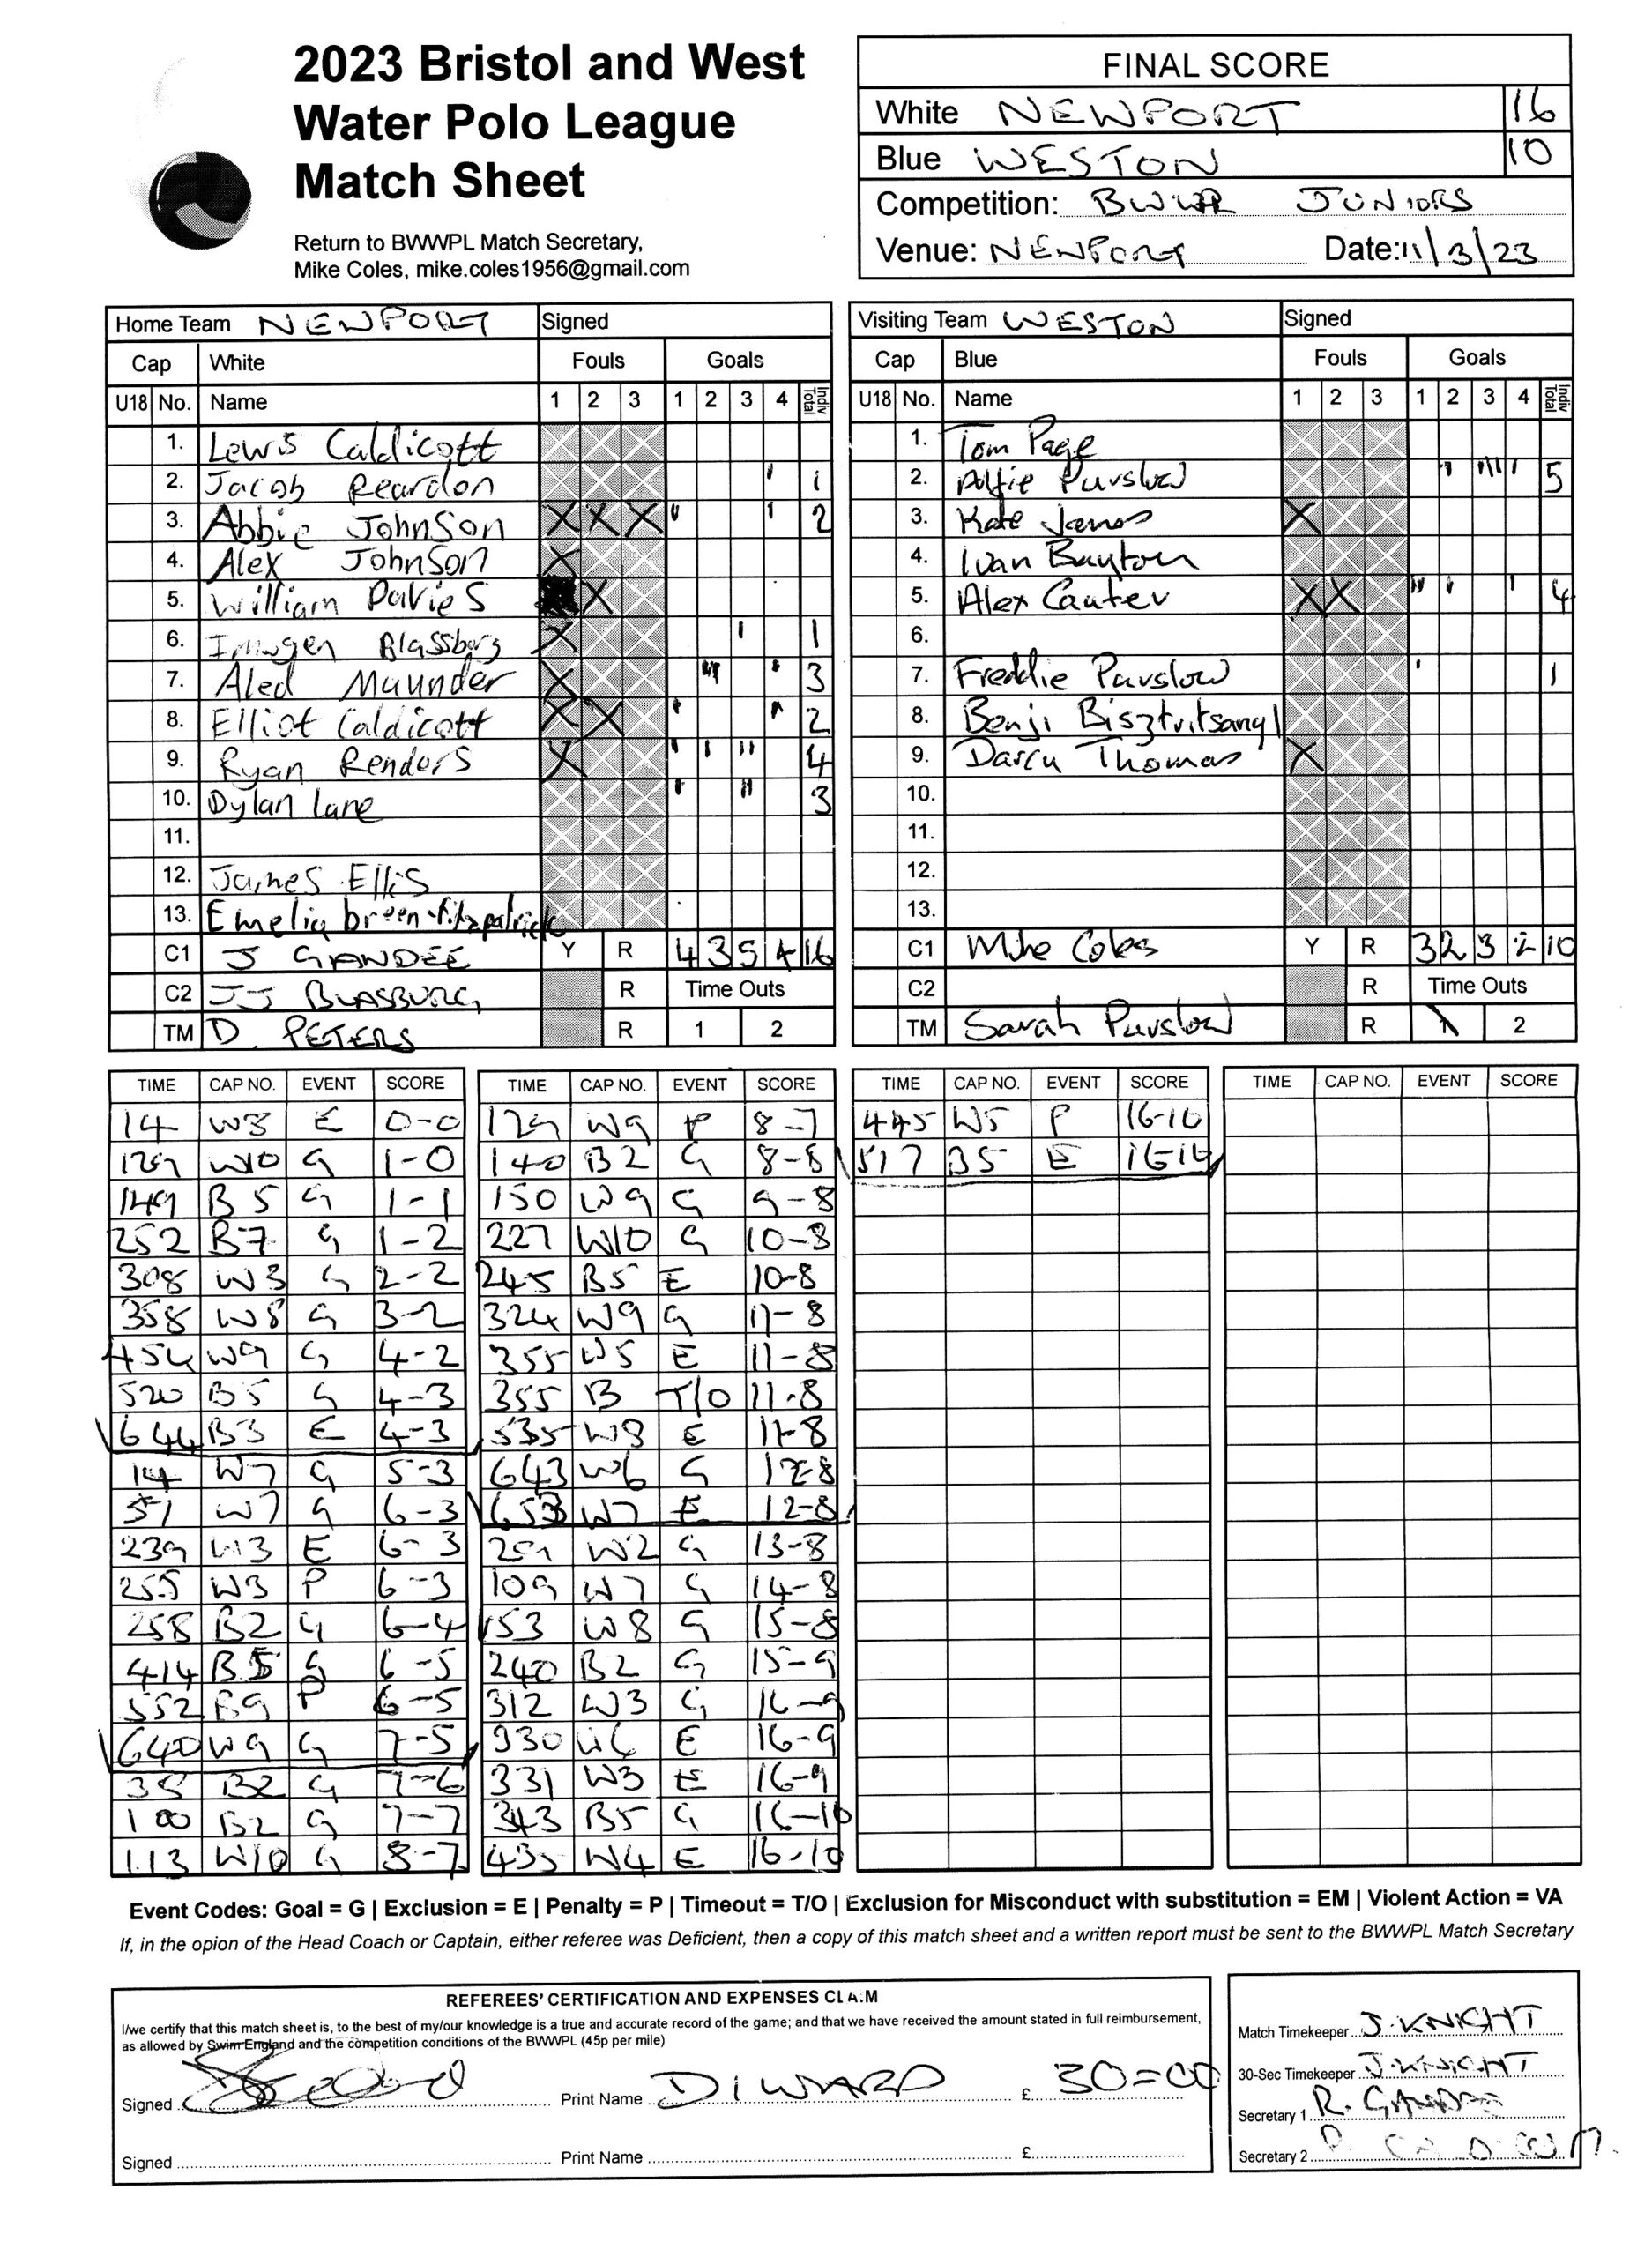 2023 Bristol and West
Water Polo League
Match Sheet
Return to BWWPL Match Secretary,
Mike Coles, mike.coles1956@gmail.com
FINAL SCORE
White NEWPORT 16
Blue WESTON 10
Competition: JUNIORS
Venue: NEWPORT Date: 11/3/23
Home Team NEWPORT Signed
Cap White Fouls Goals
U18 No. Name 1 2 3 1 2 3 4 Indiv Total
1. Lewis Caldicott
2. Jacob Reardon 1
3. Abbie Johnson X X X 2
4. Alex Johnson X
5. William Davies X
6. Imogen Blassburg X 1
7. Aled Maunder X 3
8. Elliot Caldicott X X 2
9. Ryan Rendors X 4
10. Dylan Lane 3
11.
12. James Ellis
13. Emelia breen-fitzpatrick
C1 J GANDEE Y R 4 3 5 4 16
C2 JJ BLASBURG R Time Outs
TM D. PETERS R 1 2
Visiting Team WESTON Signed
Cap Blue Fouls Goals
U18 No. Name 1 2 3 1 2 3 4 Indiv Total
1. Tom Page
2. Alfie Purslow 5
3. Kate James X
4. Ivan Bayton
5. Alex Cauter X X 4
6.
7. Freddie Purslow 1
8. Benji Bisztritsanyi
9. Darcy Thomas X
10.
11.
12.
13.
C1 Mike Coles Y R 3 2 3 2 10
C2 R Time Outs
TM Sarah Purslow R 1 2
TIME CAP NO. EVENT SCORE
14 W3 E 0-0
129 W10 G 1-0
149 B5 G 1-1
252 B7 G 1-2
308 W3 G 2-2
358 W8 G 3-2
454 W9 G 4-2
520 B5 G 4-3
644 B3 E 4-3
14 W7 G 5-3
51 W7 G 6-3
239 W3 E 6-3
255 W3 P 6-3
258 B2 G 6-4
414 B5 G 6-5
552 B9 P 6-5
640 W9 G 7-5
35 B2 G 7-6
100 B2 G 7-7
113 W10 G 8-7
TIME CAP NO. EVENT SCORE
129 W9 P 8-7
140 B2 G 8-8
150 W9 G 9-8
227 W10 G 10-8
245 B5 E 10-8
324 W9 G 11-8
355 W5 E 11-8
355 B T/O 11-8
535 W8 E 11-8
643 W6 G 12-8
653 W7 E 12-8
29 W2 G 13-8
109 W7 G 14-8
153 W8 G 15-8
240 B2 G 15-9
312 W3 G 16-9
330 W6 E 16-9
331 W3 E 16-9
343 B5 G 16-10
435 W4 E 16-10
TIME CAP NO. EVENT SCORE
445 W5 P 16-10
517 B5 E 16-10
TIME CAP NO. EVENT SCORE
Event Codes: Goal = G | Exclusion = E | Penalty = P | Timeout = T/O | Exclusion for Misconduct with substitution = EM | Violent Action = VA
If, in the opion of the Head Coach or Captain, either referee was Deficient, then a copy of this match sheet and a written report must be sent to the BWWPL Match Secretary
REFEREES' CERTIFICATION AND EXPENSES CLAIM
I/we certify that this match sheet is, to the best of my/our knowledge is a true and accurate record of the game; and that we have received the amount stated in full reimbursement,
as allowed by Swim England and the competition conditions of the BWWPL (45p per mile)
Signed Print Name DI WARD £ 30=00
Signed Print Name £
Match Timekeeper J. KNIGHT
30-Sec Timekeeper J. KNIGHT
Secretary 1 R. GANDEE
Secretary 2